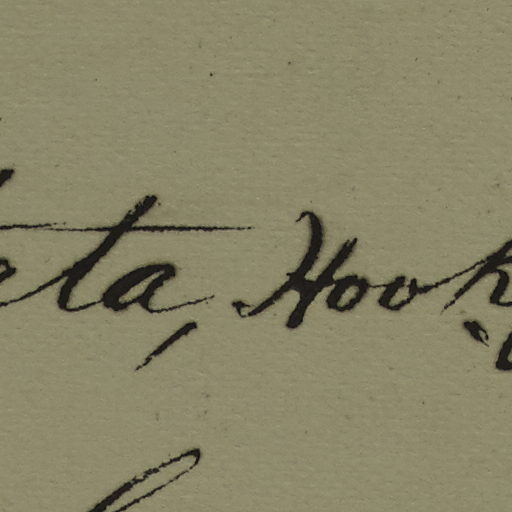 eta, Hook